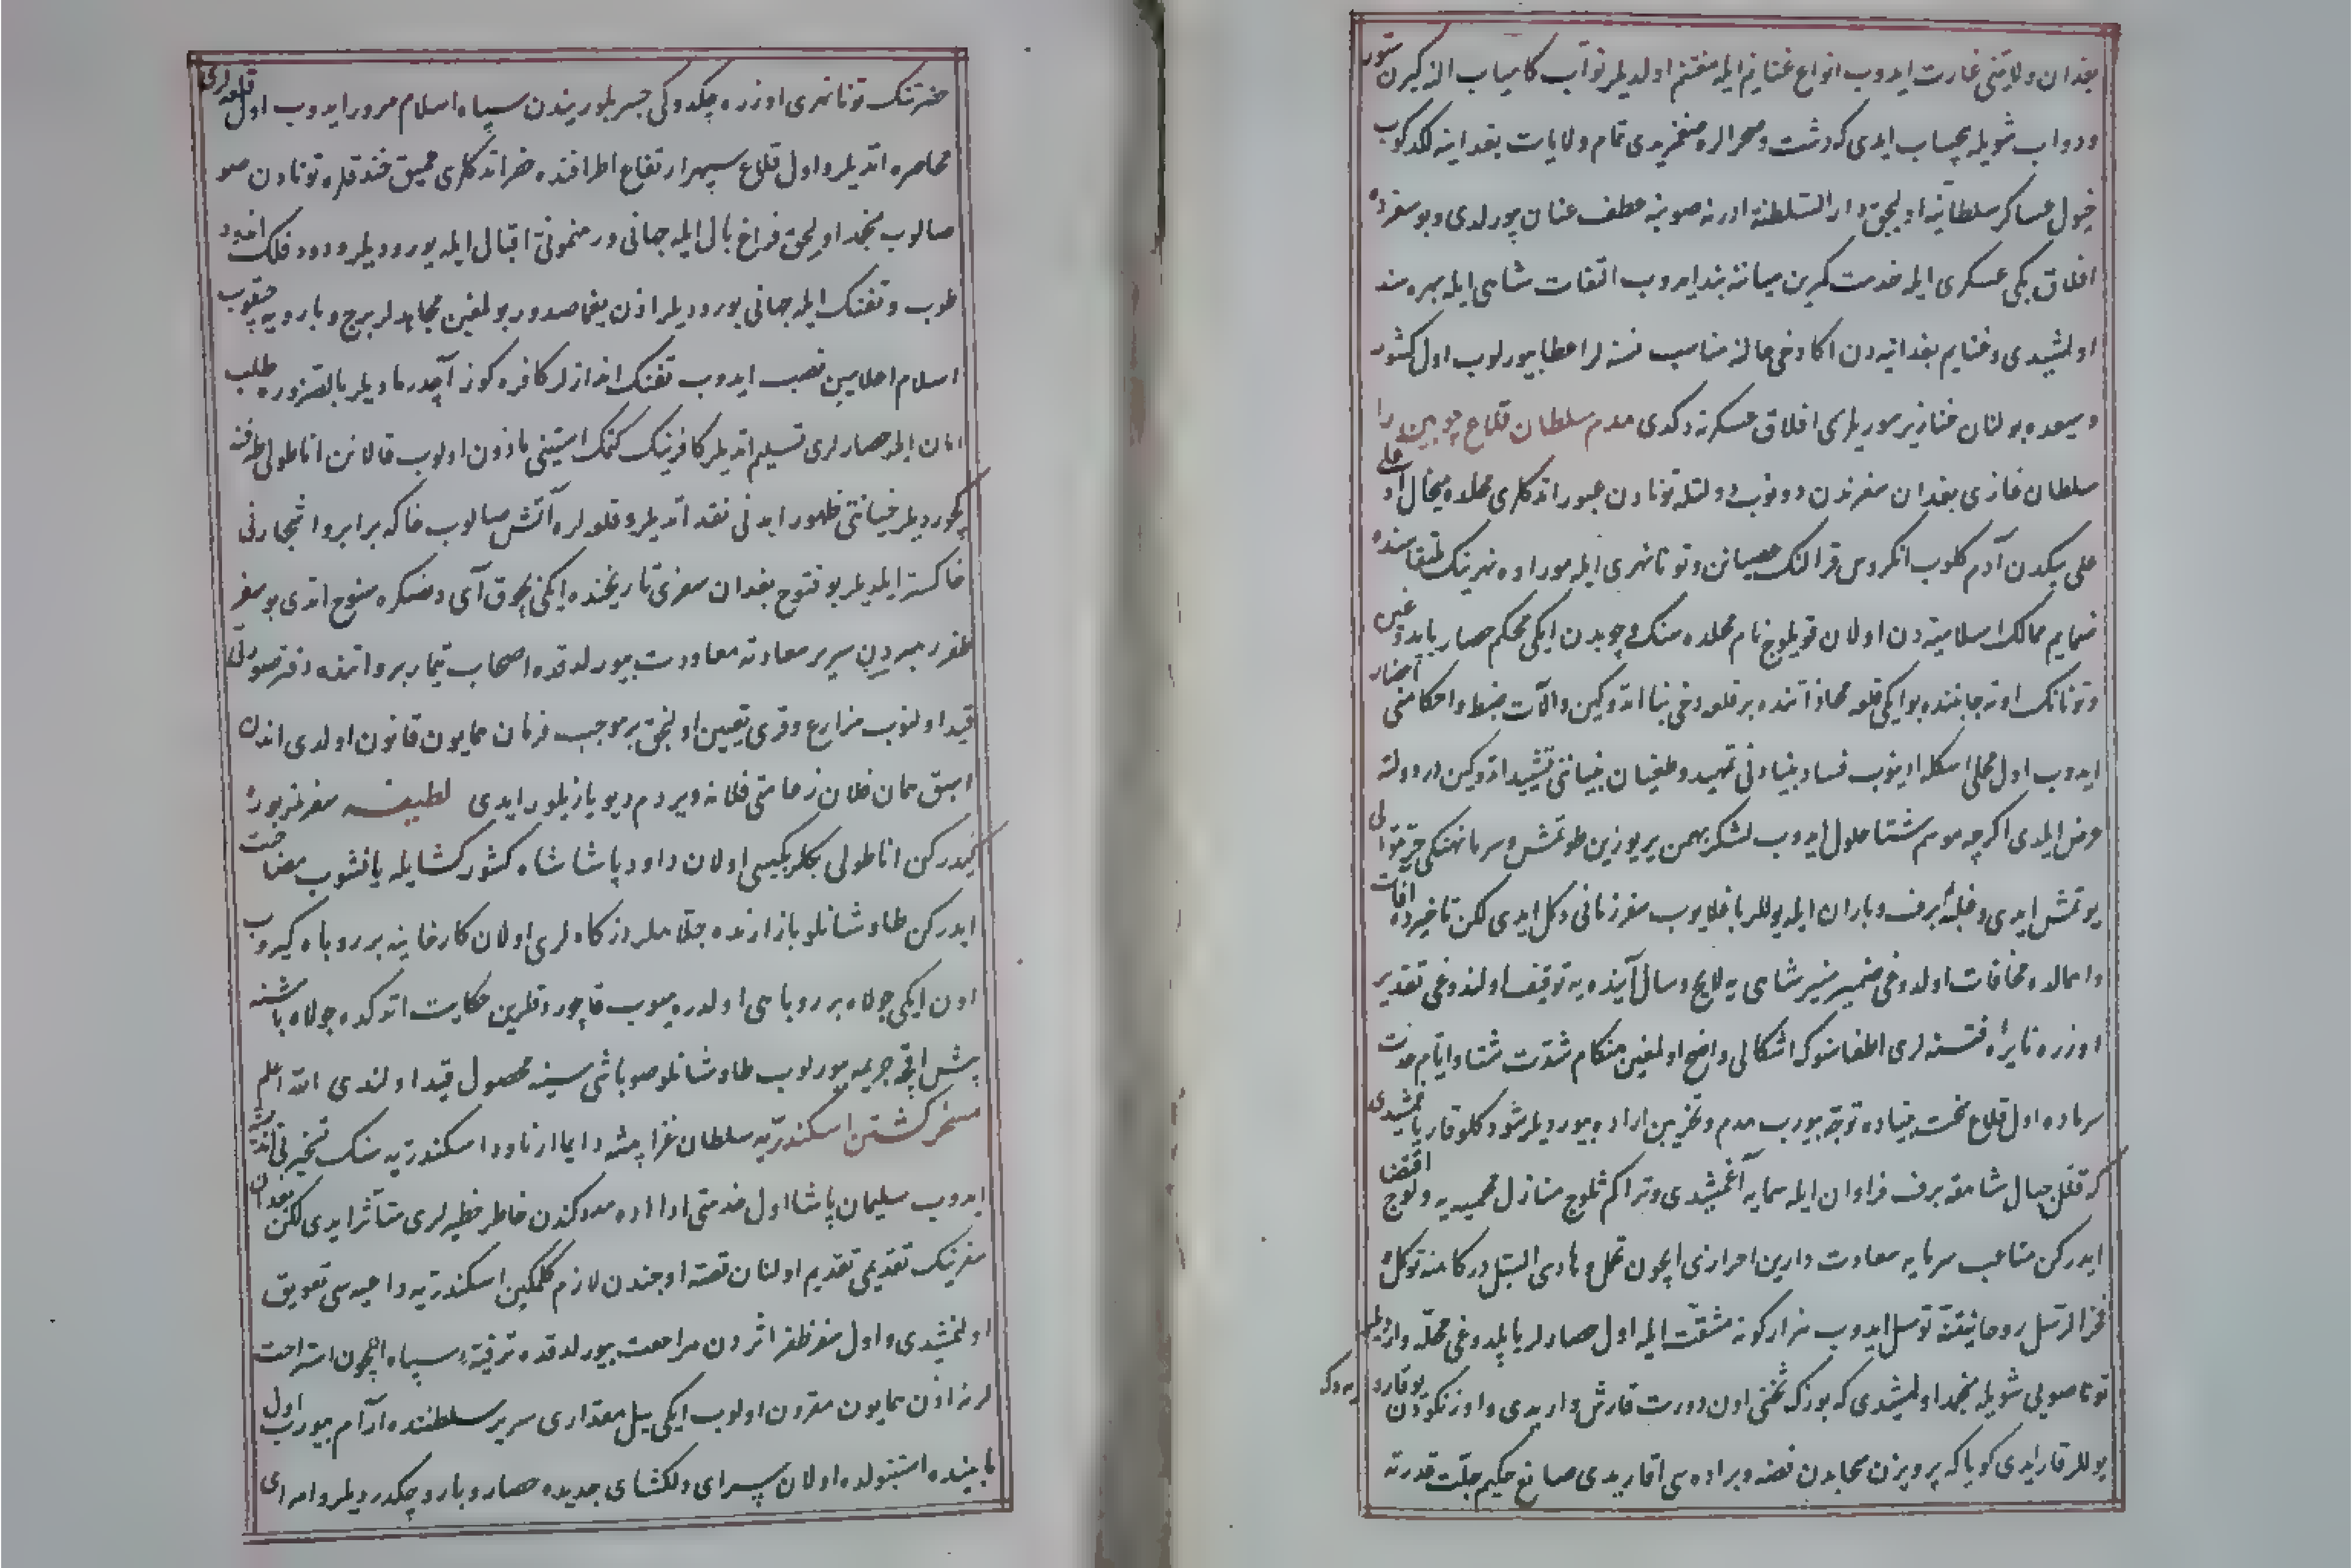 بغدان ولایتنی غارت ایدوب انواع غنایم ایله مغتنم اولدیلر نوآب کامیاب النه کیرن ستور
ودواب شویله بیحساب ایدی که دشت وصحرالره صغمزیدی تمام ولایات بغدانیه لکدکوب
خیول عساکر سلطانیه اولیجق دار السلطنة ادرنه صوبنه عطف عنان بیورلدی وبو سفرده
افلاق بکی عسکری ایله خدمت کمرین میاننه بند ایدوب التفات شاهی ایله بهره مند
اولمشیدی وغنایم بغدانیه دن اکا دخی حالنه مناسب نسنه لر اعطا بیورلوب اول کشور
وسیعده بولنان خنازیر سوریلری افلاق عسکرنه دکدی هدم سلطان قلاع چوبین را
سلطان غازی بغدان سفرندن دونوب دولتله تونادن عبور اتدکلری محلده میخال اوغلی
علی بکدن آدم کلوب انکروس قرالنک عصیانن وتونا نهری ایله موراوه نهرینک ملتقاسنده
ضمایم ممالک اسلامیه دن اولان قویلوج نام محلده سنک وچوبدن ایکی محکم حصار یاپدوغین
وتونانک اوته جانبنده بو ایکی قلعه محاذاتنده بر قلعه دخی بنا اتدوکین وآلات ضبط واحکامنی احضار
ایدوب اول محلی اسکله ایدینوب فساد بنیادنی تمهید وطغیان بنیاننی تشیید اتدوکین در دولته
عرض ایلدی اکرچه موسم شتا حلول ایدوب لشکر بهمن یر یوزین طوتمش وسرما نهنکی
یوتمش ایدی وغلبهٔ برف وباران ایله یوللر باغلایوب سفر زمانی دکل ایدی لکن تاخیرده آفات
واهمالده مخافات اولدوغی ضمیر منیر شاهی یه لایح وسال آینده یه توقیف اولندوغی تقدیر
اوزره نایرهٔ فتنه لری اطفاسنوک اشکالی واضح اولمغین هنکام شدت شتا وایام حدت
سرماده اول قلاع نحست بنیاده توجه بیورب هدم وتخریبن اراده بیوردیلر شودکلو قار یاغمشیدی
که قلل جبال شامقه برف فراوان ایله سمایه آغمشیدی وتراکم ثلوج منازل محمیه یه ولوج اقتضا
ایدرکن متاعب سرمایه سعادت دارین احرازی ایچون تحمل وهادی السبل درکاهنه توکل
فخر الرسل روحانیتنه توسل ایدوب هزار کونه مشقت ایله اول حصارلر یاپلدوغی محله واردیلر
تونا صویی شویله منجمد اولمشیدی که بوزکه ثخنی اون دورت قارش واریدی واوزنکودن یوقارو
یوللر قار ایدی کویا که پرویزن سحابدن فضه وبراده سی اقاریدی صانع حکیم جلت قدرته
یه دک
حضرتنک تونا نهری اوزره چکدوکی جسر بلوریندن سپاه اسلام مرور ایدوب اول قلعه لری
محاصره اتدیلر واول قلاع سپهر ارتفاع اطرافنده حفر اتدکلری عمیق خندقلره تونادن صو
صالوب منجمد اولیجق فراغ بال ایله جهانی ورهنمونئ اقبال ایله یورودیلر ودود فلک اندود
طوب وتفنک ایله جهانی بورودیلر اذن یغما صدور بولمغین مجاهدلر برج وبارویه چیقوب
اسلام اعلامین نصب ایدوب تفنک اندازلر کافره کوز آچدرمادیلر بالضروره طلب
امان ایله حصارلری تسلیم اتدیلر کافرینک کتمک استینی مأذون اولوب قالانن اناطولی طرفنه
کچوردیلر خیانتی ظهور ایدنی نقد اتدیلر وقلعه لره آتش صالوب خاکه برابر واشجارنی
خاکستر ایلدیلر بو فتوح بغدان سفری تاریخنده ایکی بچوق آی دنصکره سنوح اتدی بو سفر
ظفر رهبردن سریر سعادته معاودت بیورلدقده اصحاب تیمار برواتنه دفتر صورتی
قید اولنوب مزارع وقری تعیین اولنجق بر موجب فرمان همایون قانون اولدی اندن
اسبق همان فلان زعامتی فلانه ویردم دیو یازیلور ایدی لطیفه سفر مزبوره
کیدرکن اناطولی بکلربکیسی اولان داود پاشا شاه کشور کشا ایله یانشوب مصاحبت
ایدرکن طاوشانلو بازارنده جلاهلر دزکاهلری اولان کارخانیه بر روباه کیروب
اون ایکی جولاه بر روباهی اولدره میوب قاچوردقلرین حکایت اتدکده جولاه باشنه
بش اقچه جریمه بیورلوب طاوشانلو صوباشیسینه محصول قید اولندی الله اعلم
مسخر کشتن اسکندریه سلطان غزا پیشه دایما ارناودا اسکندریه سنک تسخیرنی اندیشه
ایدوب سلیمان پاشا اول خدمتی ادا ایده مدوکندن خاطر خطیرلری متأثر ایدی لکن بغدان
سفرینک تقدیمی تقدیم اولنان قصه اوجندن لازم کلمکین اسکندریه داعیه سی تعویق
اولنمشیدی واول سفر ظفر اثردن مراجعت بیورلدقده ترفیهٔ سپاه ایچون استراحت
لرنه اذن همایون مقرون اولوب ایکی ییل مقداری سریر سلطنتده آرام بیورب اول
مابینده استنبولده اولان سرای دلکشای جدیده حصار وبارو چکدردیلر وامرای